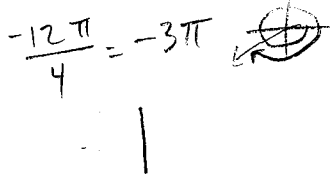 -12π/4 = -3π
1